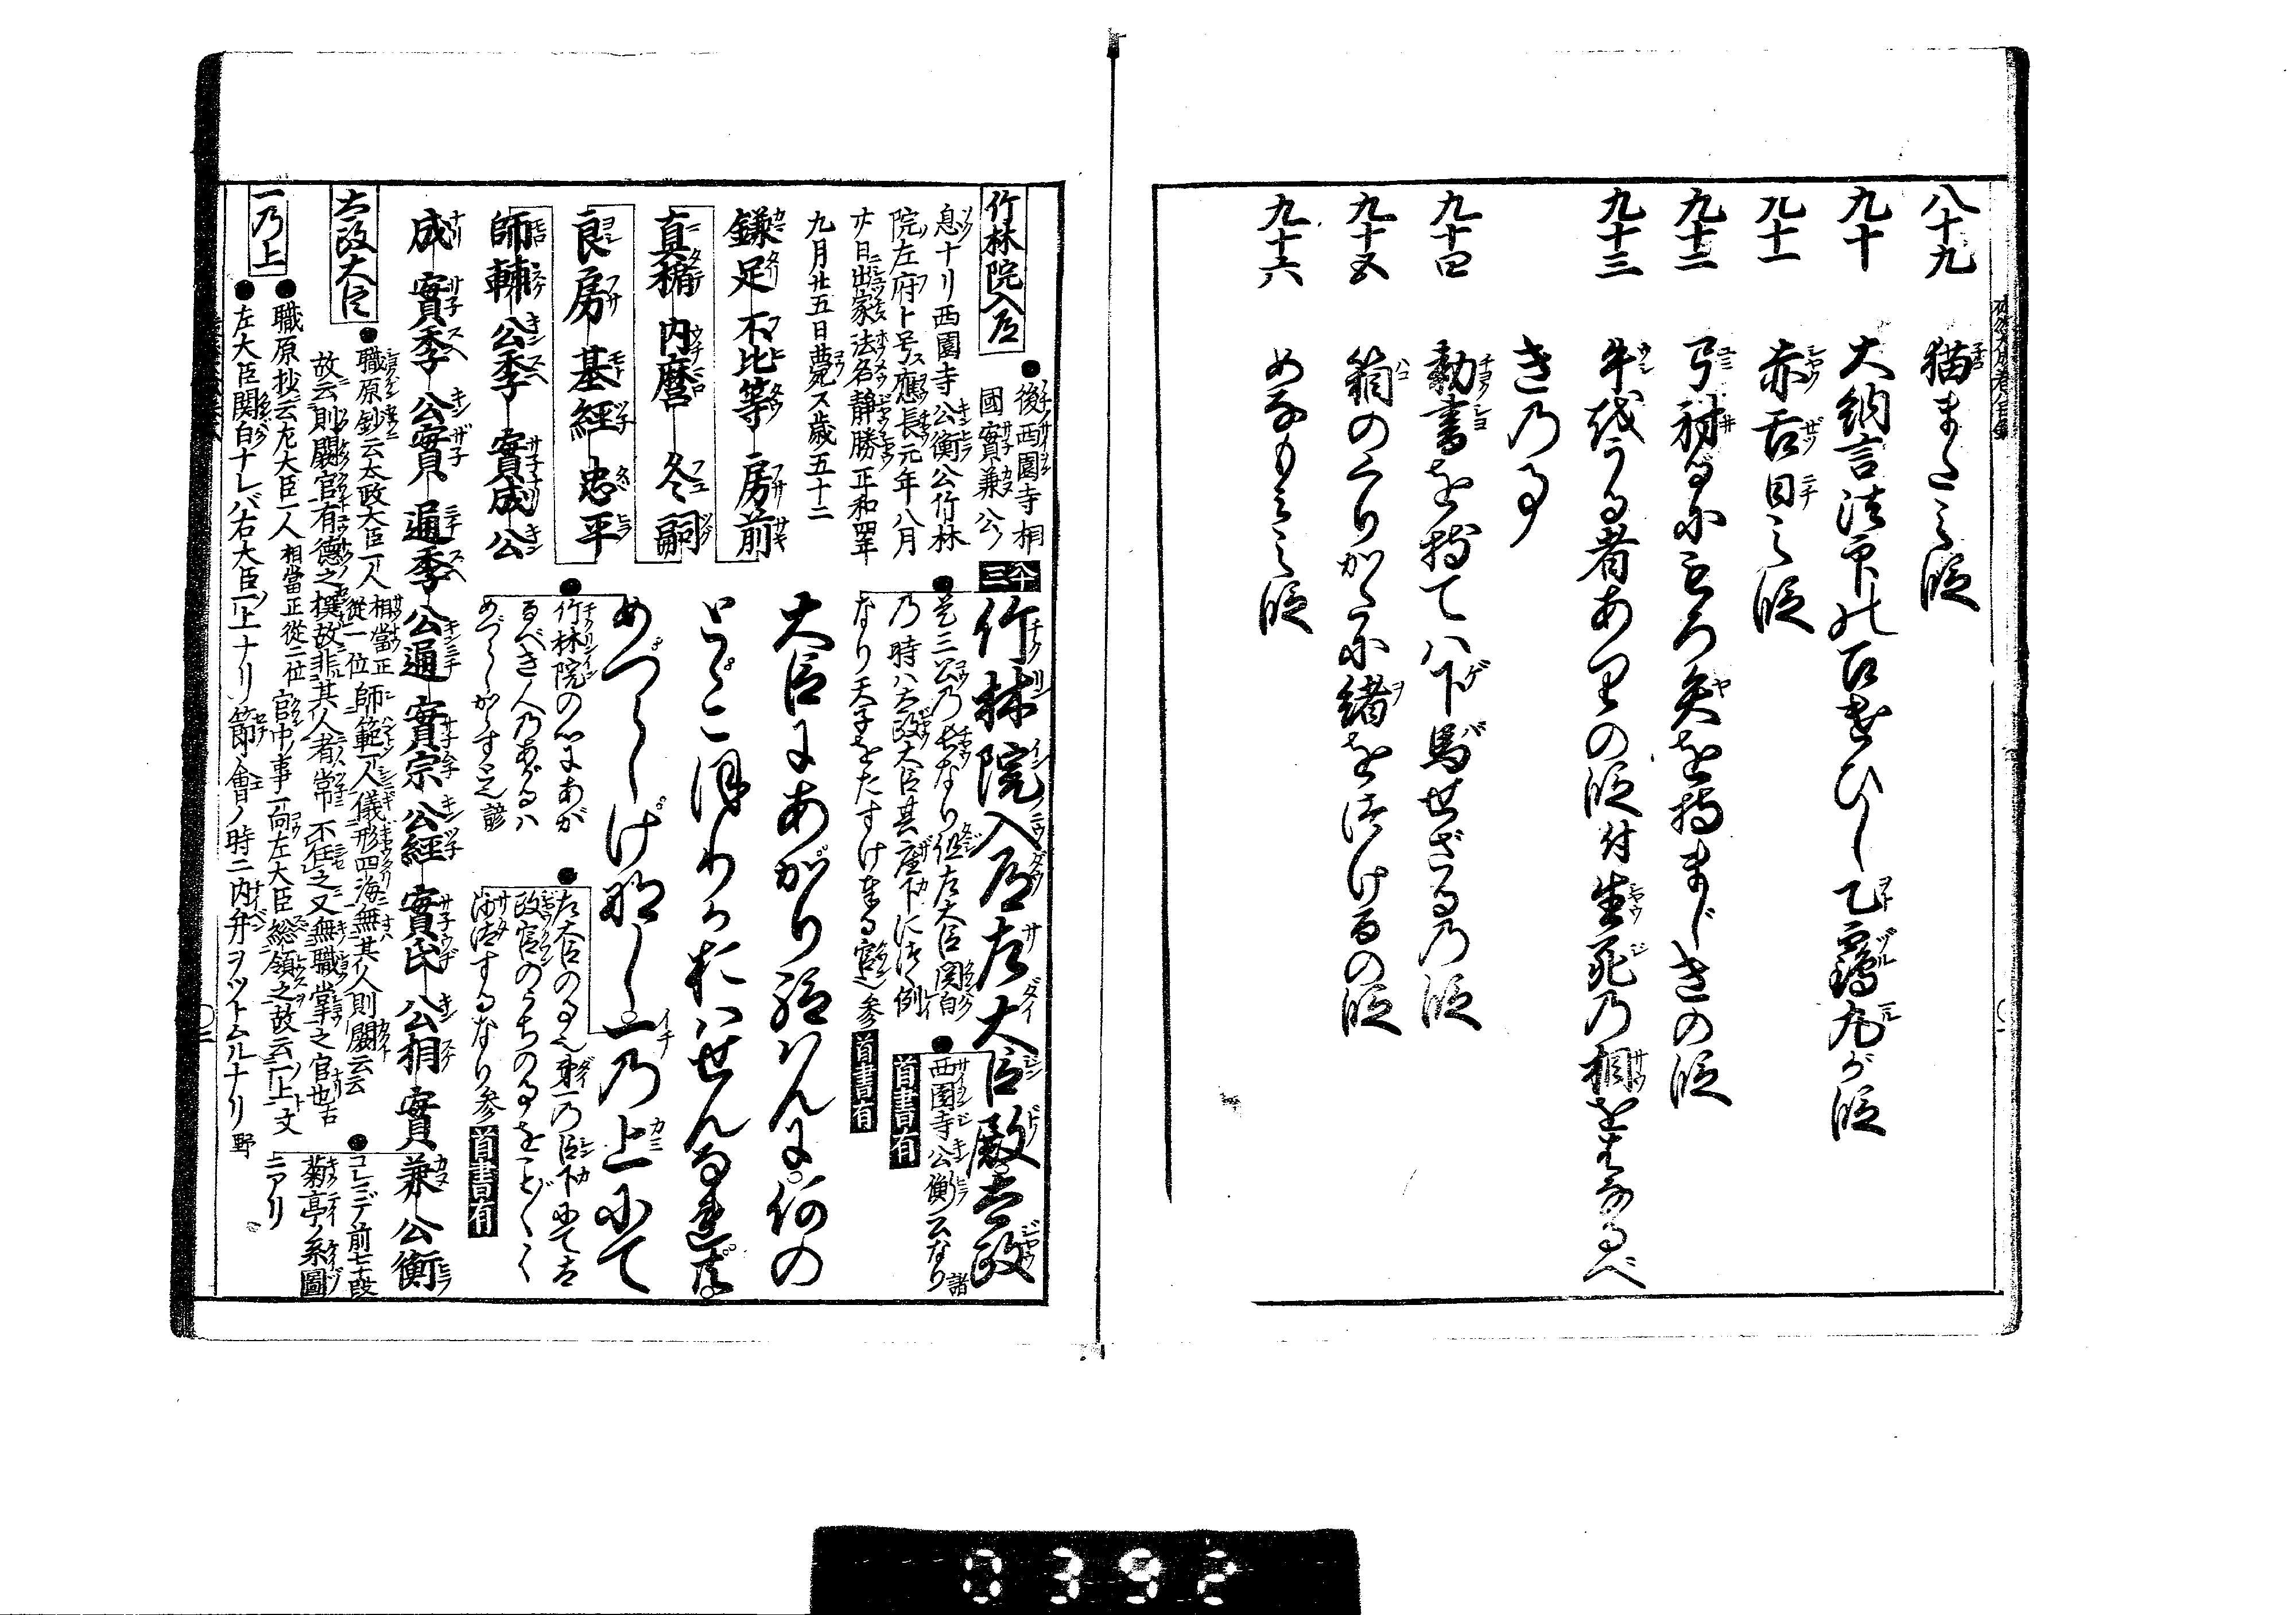 八十九　猫またの段
九十　大納言法印の召つかひし乙鶴丸が段
九十一　赤舌日の段
九十二　弓射るにもろ矢を持まじきの段
九十三　牛をうる者ありの段付生死の相をはなるべ
きの事
九十四　勅書を持ては下馬せざるの段
九十五　箱のくりかたに緒をつけるの段
九十六　めなもみの段
竹林院入道
後西園寺相
國實兼公ノ
息ナリ西園寺公衡公竹林
院左府ト号ス應長元年八月
廿日出家法名静勝正和四年
九月廿五日薨ス歳五十二
鎌足 不比等 房前
真楯 内麿 冬嗣
良房 基經 忠平
師輔 公季 實成 公
成 實季 公實 通季 公通 實宗 公經 實氏 公相 實兼 公衡
コレマデ前七十段
菊亭ノ系圖
ニアリ
太政大臣
職原鈔云太政大臣一人相當正從一位師範一人儀形四海無其人則闕云云
故云則闕官有德之撰故非其人者常不任之又無職掌之官也
一乃上
職原抄云左大臣一人相當正從二位官中事一向左大臣総領之故云一上文
左大臣関白ナレバ右大臣一上ナリ節會ノ時ニ内弁ヲツトムルナリ野
八十三
竹林院入道左大臣殿太政
大臣にあがり給はんに何の
とゞこほりかおはせんなれども
めづらしげなし一の上にて
是三公の長なり但左大臣関白
の時は太政大臣其座下につく例
なり天子をたすけ奉る官也参首書有
首書有
西園寺公衡公なり諸
竹林院の心にあが
るべき人のあがるは
めづらしからず是諺
左大臣の事也第一の臣下にて太
政官のうちの事をことごとく
沙汰するなり参首書有
0392